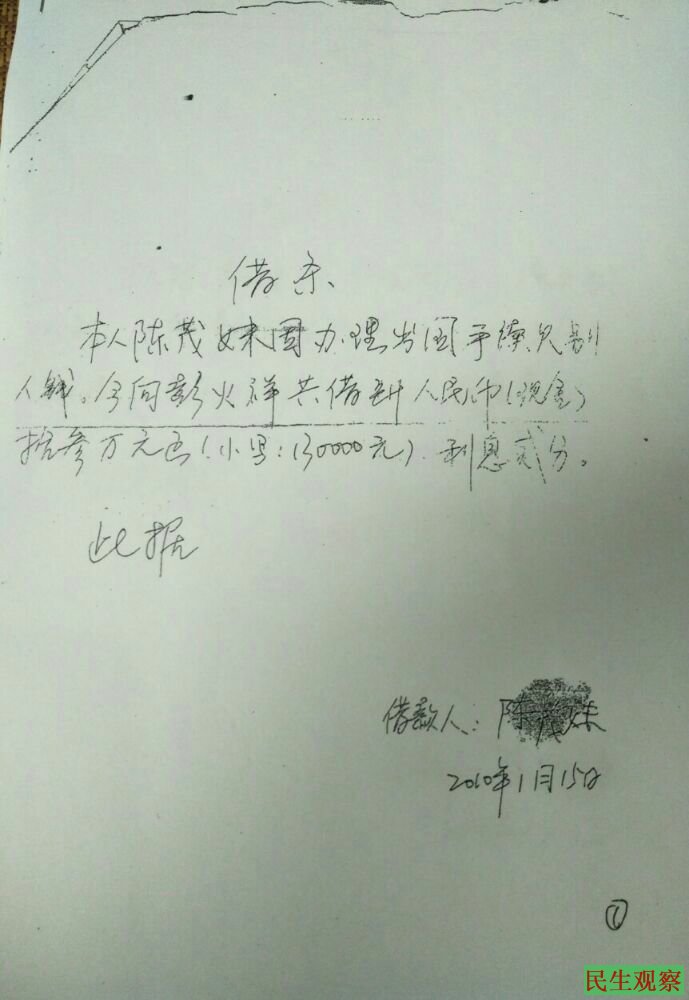 借条
本人陈茂妹因办理出国手续欠别
人钱。今向彭火祥共借到人民币(现金)
拾叁万元正(小写:130000元).利息贰分。
此据
借款人:陈茂妹
2010年1月15日
①
民生观察